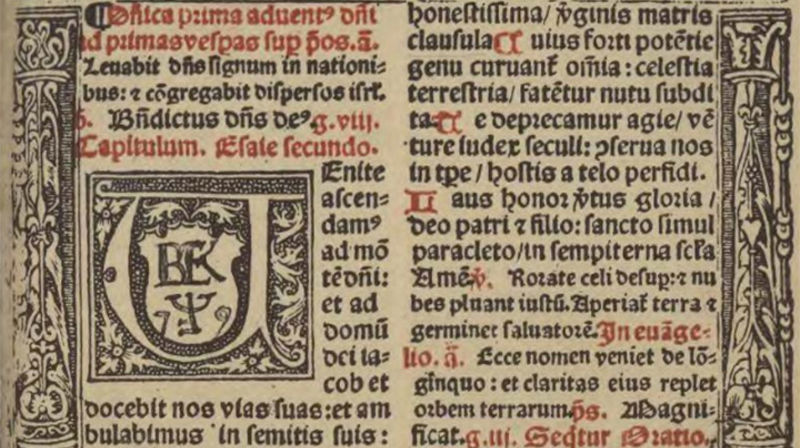 ¶Dñica prima aduentꝰ dñi
ad primas vesꝑas suꝑ p̄os. a̅.
Leuabit dñs signum in nationi-
bus: ⁊ cōgregabit dispersos isrl̄.
p̄. Bñdictus dñs deꝰ g. viij.
Capitulum. Esaie secundo.
VEnite
ascen-
damꝰ
ad mō
tē dñi:
et ad
domū
dei ia-
cob et
docebit nos vias suas: et am
bulabimus in semitis suis:
BEK
79
honestissima/ v̓ginis matris
clausula C uius forti potētie
genu curuant̄ oīa: celestia
terrestria/ fatētur nutu subdi
ta T e deprecamur agie/ vē
ture iudex seculi: ꝯserua nos
in tp̄e/ hostis a telo perfidi.
L aus honor v̓tus gloria/
deo patri ⁊ filio: sancto simul
paracleto/ in sempiterna scl̄a
Amē v̓. Rorate celi desuꝑ: ⁊ nu
bes pluant iustū. Aperiat̄ terra ⁊
germinet saluatorē. In euāge-
lio. a̅. Ecce nomen veniet de lō-
ginquo: et claritas eius replet
orbem terrarum. p̄s. Magni-
ficat. g. iij. Seq̄tur Oratio.